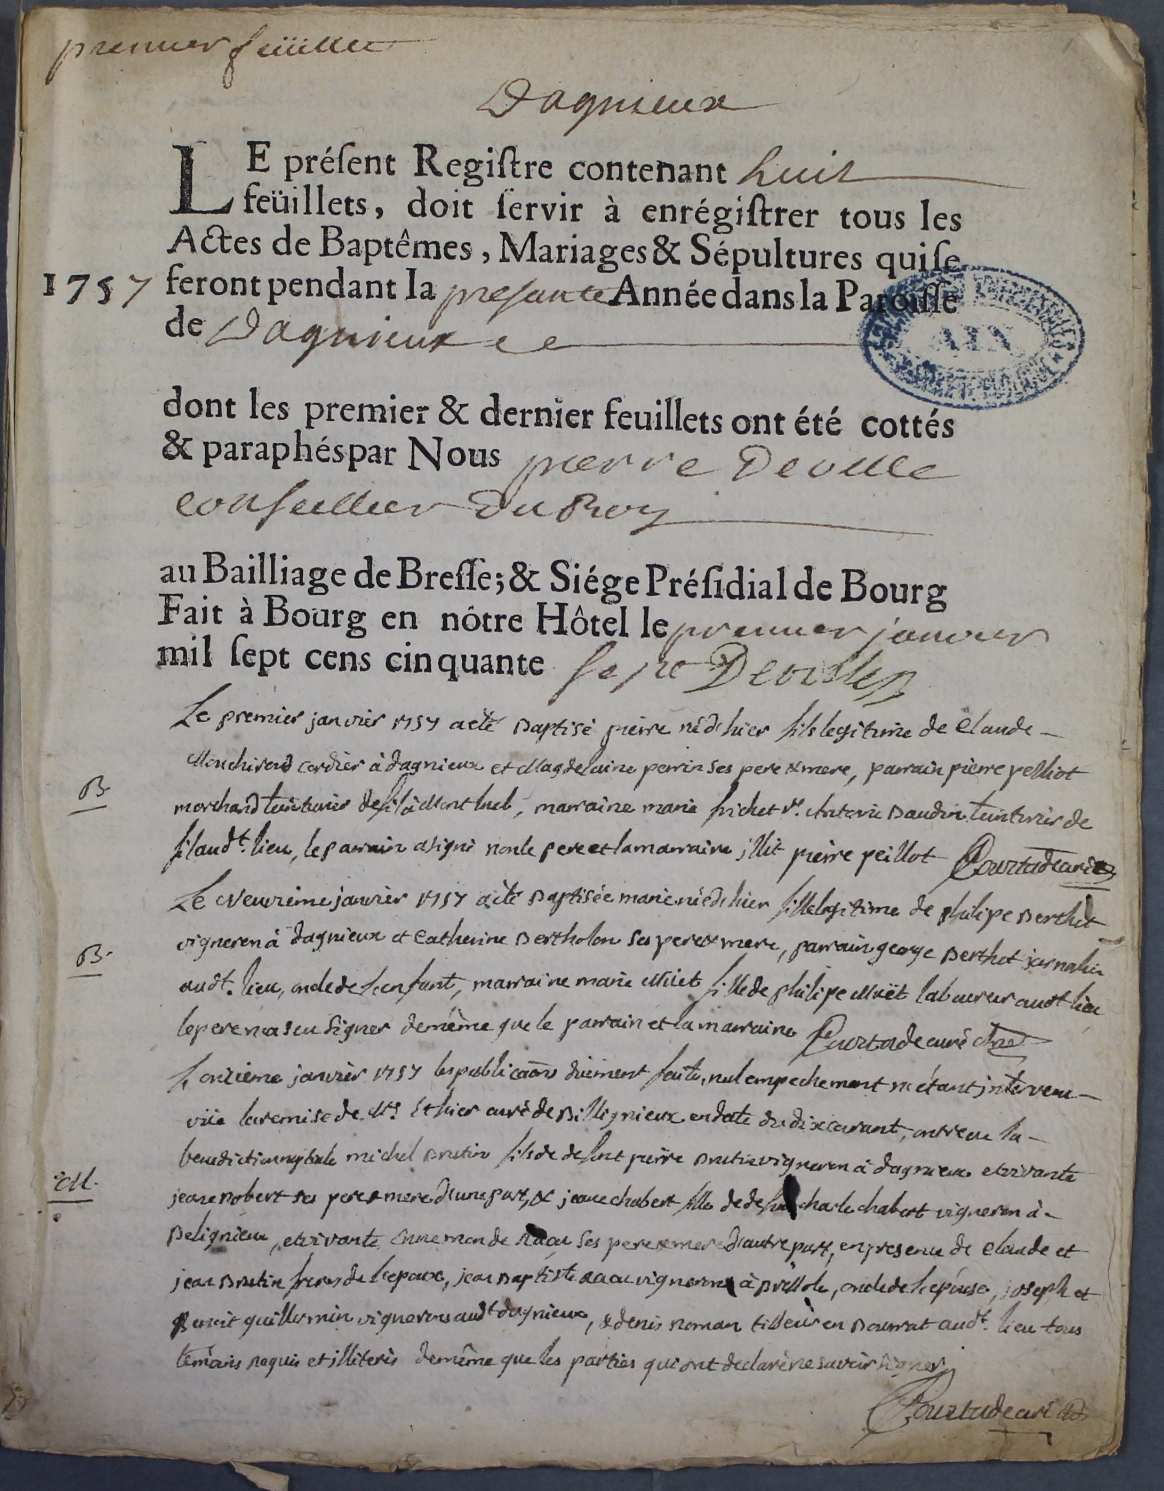 premier feüillet
Dagnieux
LE présent Registre contenant huit
feüillets, doit servir à enrégistrer tous les
Actes de Baptêmes, Mariages & Sépultures qui se
1757 feront pendant la presante Année dans la Paroisse
de Dagnieux
AIN
dont les premier & dernier feuillets ont été cottés
& paraphés par Nous pierre Deville
conseiller du Roy
au Bailliage de Bresse; & Siége Présidial de Bourg
Fait à Bourg en nôtre Hôtel le premier janvier
mil sept cens cinquante sept Deville
Le premier janvier 1757 a été Baptisé pierre né d'hier fils legitime de Claude
cordier à dagnieux et Magdelaine perrin ses pere & mere, parrain pierre peillot
B
marchand teinturier de à Montluel, marraine marie frichet ve. Antoine Baudin teinturier de
audt. lieu, le parrain a signé non le pere et la marraine illit pierre peillot Courtade curé
Le Neuvieme janvier 1757 a été Baptisée marie née d'hier fille legitime de philipe Berthet
vigneron à dagnieux et Catherine Bertholon ses pere & mere, parrain george Berthet journalier
B.
audt. lieu, oncle de l'enfant, marraine marie Miet fille de philipe Miët laboureur audt lieu
le pere n'a seu signer de même que le parrain et la marraine Courtade curé
L'onzieme janvier 1757 les publicaons düement faites, nul empechement n'étant intervenu
vüe la remise de Mr. Ethier curé de Billignieux en date du dix courant, ont reçu la
benediction nuptiale michel Brutin fils de defunt pierre Brutin vigneron à dagnieux et vivante
M.
jeane robert ses pere & mere d'une part, & jeane chabert fille de defunt charle chabert vigneron à
Belignieux, et vivante Ennemonde ses pere & mere d'autre part, en presence de Claude et
jean Brutin freres de l'epoux, jean Baptiste vigneron à oncle de l'epouse, joseph et
Benoit guillermin vignerons audt dagnieux, & denis roman tilleur en Bourrat audt. lieu tous
témoins requis et illiterés de même que les parties qui ont declaré ne savoir signer
Courtade curé